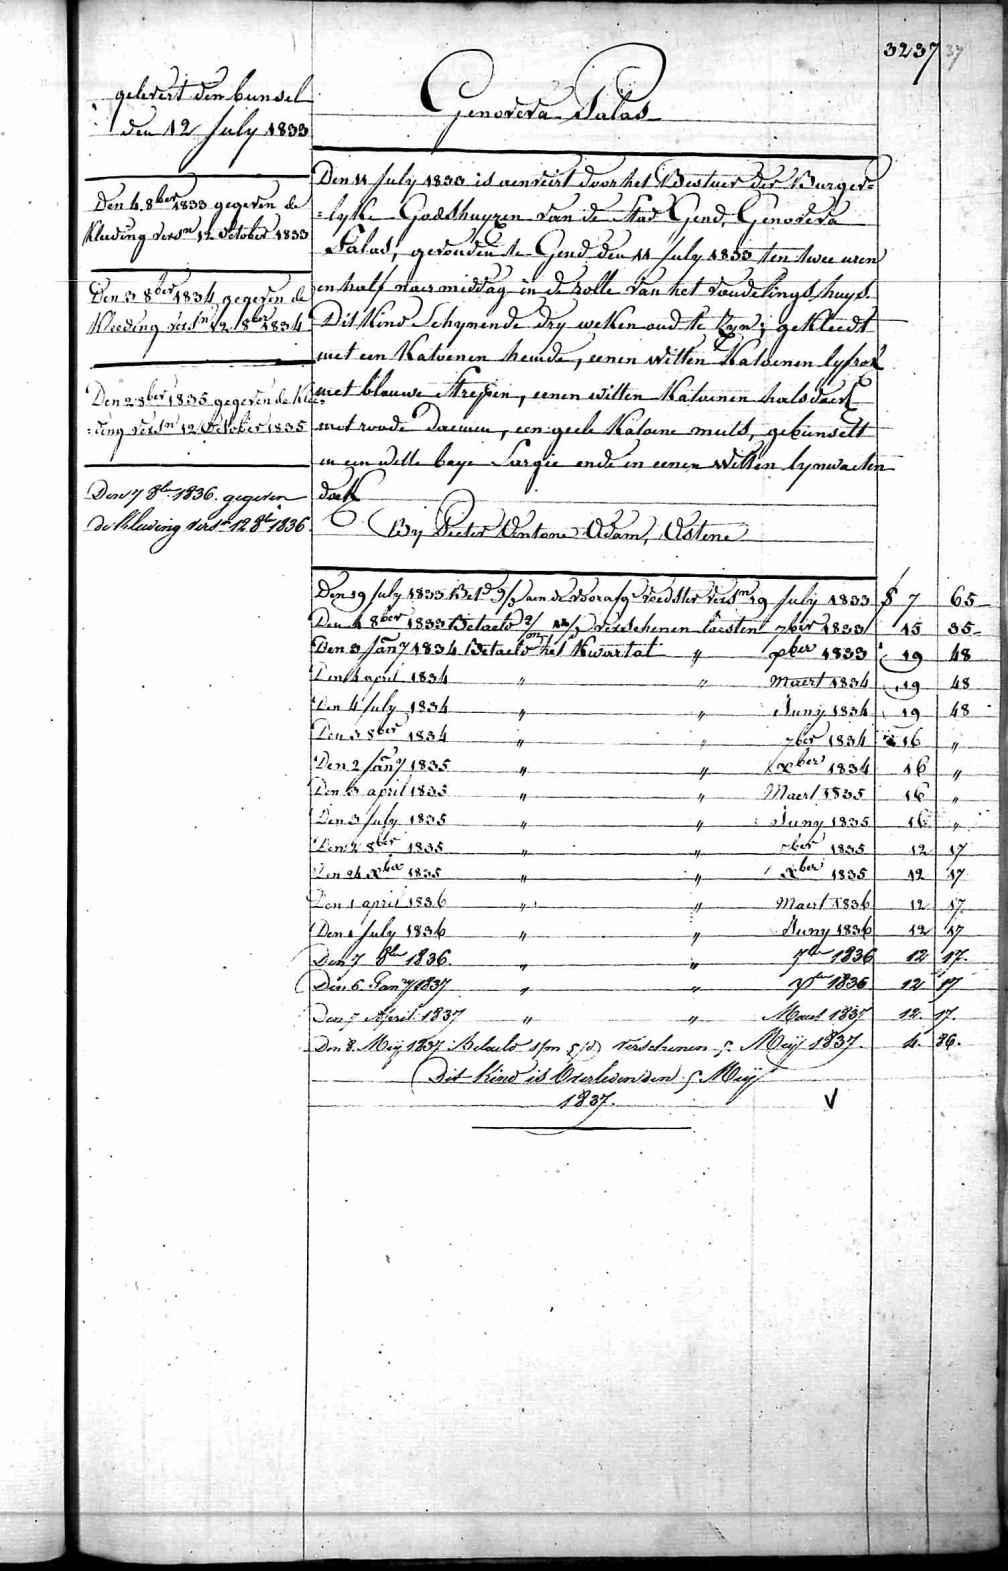 3237 37
Genoveva Palas
gelevert den bunsel
den 12 July 1833
Den 4 8ber 1833 gegeven de
kleeding versn 12 October 1833
Den 3 8ber 1834 gegeven de
kleeding versn 12 8ber 1834
Den 2 8ber 1835 gegeven de klee-
=ding versn 12 October 1835
Den 7 8br 1836 gegeven
de kleeding versn 12 8br 1836
Den 11 July 1833 is aenveirt door het Bestuer der Burger=
=lyke Godshuyzen van de Stad Gend, Genoveva
Palas, gevonden te Gend den 11 July 1833 ten twee uren
en half naer middag in de rolle van het vondelings huys.
Dit Kind Schynende dry weken oud te zyn; gekleedt
met een Katoenen hemde, eenen witten Katoenen lyfrok
met blauwe strepen, eenen witten Katoenen halsdoek
met roode , een geele Katoene muts, gebunselt
in een witte baye Sargie ende in eenen witten lynwaeten
doek
By Pieter Antone Adam, Astene
Den 19 July 1833 Betd aen de voorafge voedster versn 19 July 1833 § 7 65
Den 4 8ber 1833 Betaeld verschenen laesten 7ber 1833 15 35
Den 3 Jany 1834 Betaeld het Kwartal " xber 1833 19 48
Den 4 april 1834 " " Maert 1834 19 48
Den 4 July 1834 " " Juny 1834 19 48
Den 3 8ber 1834 " " 7ber 1834 16 "
Den 2 Jany 1835 " " xber 1834 16 "
Den 3 april 1835 " " Maert 1835 16 "
Den 3 July 1835 " " Juny 1835 16 "
Den 2 8ber 1835 " " 7ber 1835 12 17
Den 24 xber 1835 " " xber 1835 12 17
Den 1 april 1836 " " Maert 1836 12 17
Den 1 July 1836 " " Juny 1836 12 17
Den 7 8br 1836 " " 7br 1836 12 17
Den 6 Jany 1837 " " xbr 1836 12 17
Den 7 April 1837 " " Maert 1837 12 17
Den 8 Meij 1837 Betaeld verschenen 5 Meij 1837. 4. 86.
Dit Kind is Overleden den 5 Meij
1837. V